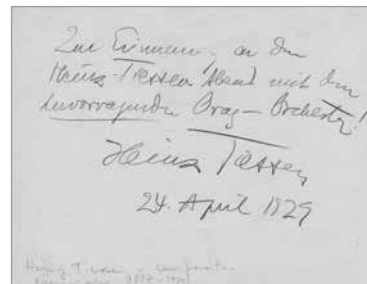 Zur Erinnerung an den
Heinz-Tiessen Abend mit dem
hervorragenden Orag-Orchester!
Heinz Tiessen
24. April 1929
Heinz Tiessen